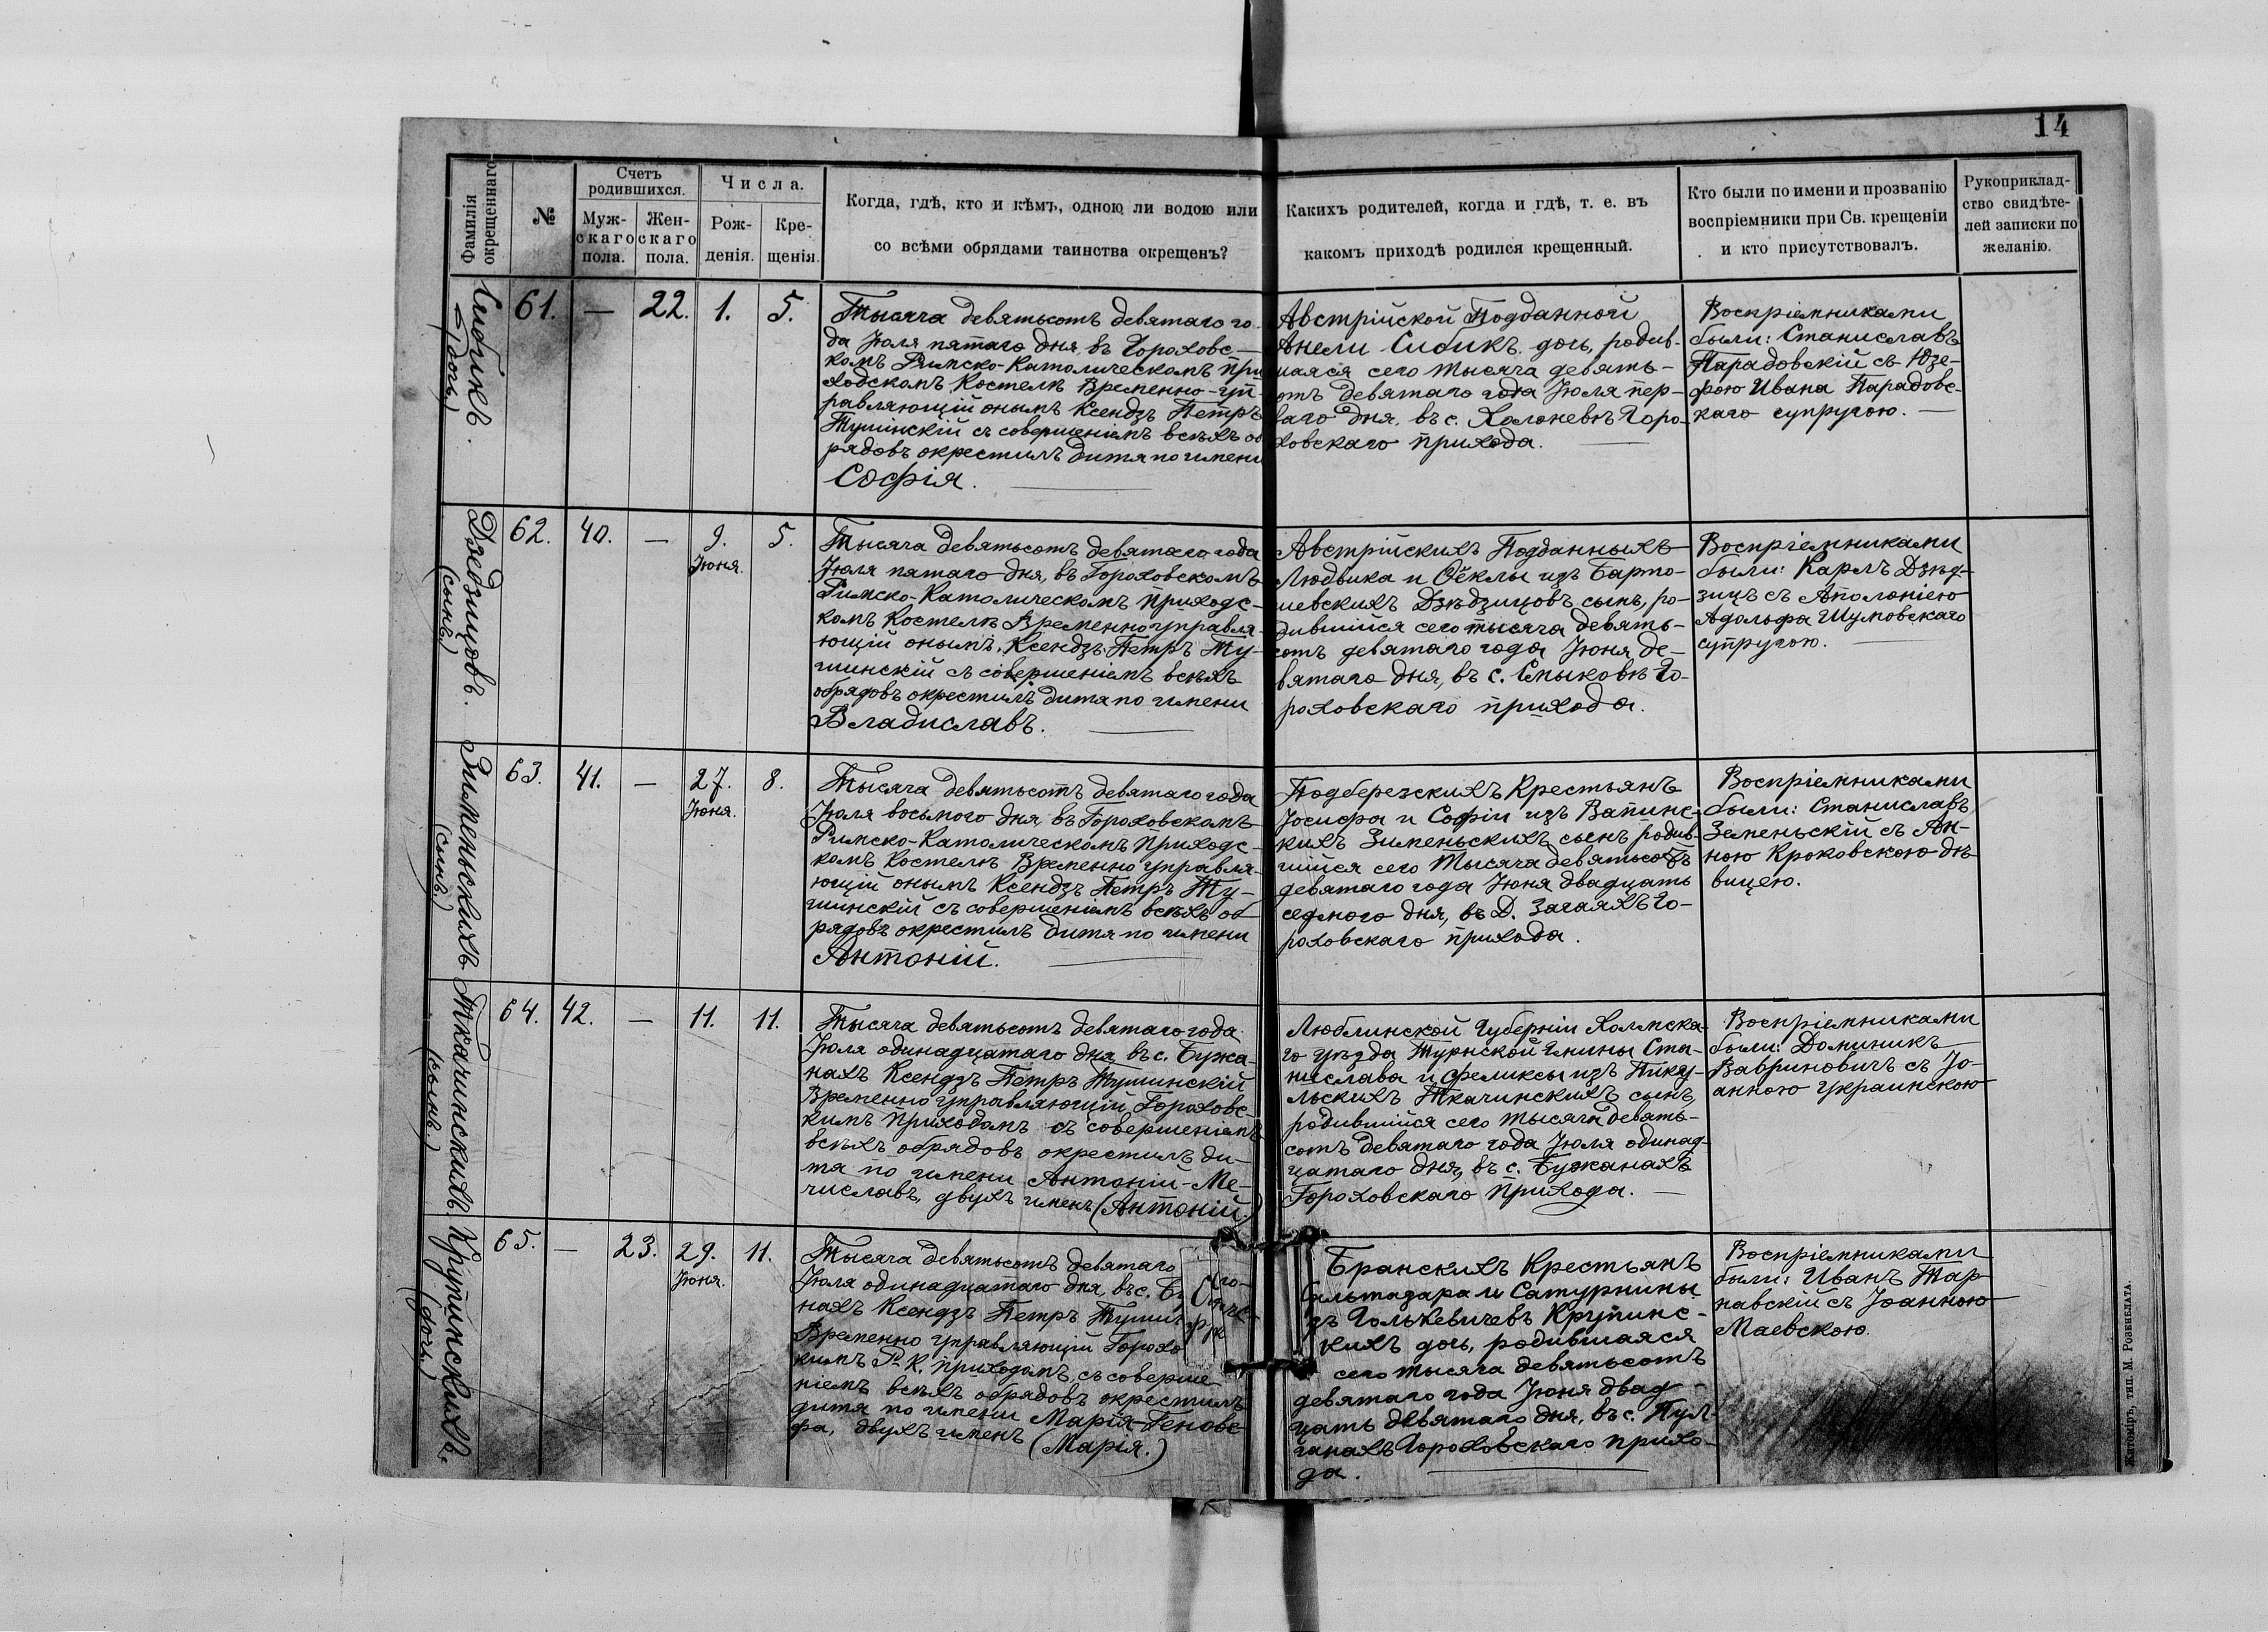 14
Фамилія
окрещеннаго
№
Счетъ
родившихся.
Муж-
скаго
пола.
Жен-
скаго
пола.
Числа.
Рож-
денія.
Кре-
щенія.
Когда, гдѣ, кто и кѣмъ, одною ли водою или
со всѣми обрядами таинства окрещенъ?
Какихъ родителей, когда и гдѣ, т. е. въ
какомъ приходѣ родился крещенный.
Кто были по имени и прозванію
воспріемники при Св. крещеніи
и кто присутствовалъ.
Рукоприклад-
ство свидѣте-
лей записки по
желанію.
Сибикъ.
(дочь)
61.
—
22.
1.
5.
Тысяча девятьсотъ девятаго го-
да Іюля пятаго дня, въ Гороховс-
комъ Римско-Католическомъ При
ходскомъ Костелѣ Временно-уп-
равляющій онымъ Ксендзъ Петръ
Тушинскій съ совершеніемъ всѣхъ об
рядовъ окрестилъ дитя по имени
Софія.
Австрійской Подданной
Анели Сибикъ дочь, родив-
шаяся сего тысяча девять-
отъ девятаго года Іюля пер-
ваго дня, въ с. Холоневѣ Горо-
ховскаго прихода.
Воспріемниками
были: Станиславъ
Парадовскій съ Юзе-
фою Ивана Парадовс-
каго супругою.
Дзедзицовъ.
(сынъ)
62.
40.
—
9.
Іюня.
5.
Тысяча девятьсотъ девятаго года
Іюля пятаго дня, въ Гороховскомъ
Римско-Католическомъ приходс-
комъ Костелѣ Временно управля-
ющій онымъ, Ксендзъ Петръ Ту-
шинскій съ совершеніемъ всѣхъ
обрядовъ окрестилъ дитя по имени
Владиславъ.
Австрійскихъ Подданныхъ
Людвика и Ѳёклы изъ Барто-
шевскихъ Дзѣдзицовъ сынъ, ро-
дившійся сего тысяча девять-
сотъ девятаго года Іюня де-
вятаго дня, въ с. Смыковѣ Го-
роховскаго прихода.
Воспріемниками
были: Карлъ Дзѣд-
зицъ съ Аполоніею
Адольфа Шумовскаго
супругою.
Зименьскихъ
(сынъ)
63.
41.
—
27.
Іюня.
8.
Тысяча девятьсотъ девятаго года
Іюля восьмого дня въ Гороховскомъ
Римско-Католическомъ Приходс-
комъ Костелѣ Временно управля-
ющій онымъ Ксендзъ Петръ Ту-
шинскій съ совершеніемъ всѣхъ об
рядовъ окрестилъ дитя по имени
Антоній.
Подберезскихъ Крестьянъ
Іосифа и Софіи изъ Вапинс-
кихъ Зименьскихъ сынъ родив-
шійся сего Тысяча девятьсотъ
девятаго года Іюня двадцать
седмого дня, въ Д. Загаяхъ Го-
роховскаго прихода.
Воспріемниками
были: Станиславъ
Земеньскій съ Ан-
ною Кроковскою дѣ-
вицею.
Ткачинскихъ.
(сынъ.)
64.
42.
—
11.
11.
Тысяча девятьсотъ девятаго года
Іюля одинадцатаго дня въ с. Бужа-
нахъ Ксендзъ Петръ Тушинскій
Временно управляющій Гороховс-
кимъ Приходомъ съ совершеніемъ
всѣхъ обрядовъ окрестилъ ди-
тя по имени Антоній-Ме-
числавъ, двухъ именъ (Антоній.)
Люблинской Губерніи Холмска-
го уѣзда Турнской Гмины Ста-
нислава и Феликсы изъ Пику-
льскихъ Ткачинскихъ сынъ,
родившійся сего тысяча девять-
сотъ девятаго года Іюля одинад-
цатаго дня, въ с. Бужанахъ
Гороховскаго Прихода.
Воспріемниками
были: Доминикъ
Вавриновичъ съ Іо-
анною Украинскою
Крупинскихъ.
(дочь)
65.
—
23.
29.
Іюня.
11.
Тысяча девятьсотъ девятаго
Іюля одинадцатаго дня, въ с.
нахъ Ксендзъ Петръ
Временно управляющій Горохо
кимъ Р. К. приходомъ, съ соверше-
ніемъ всѣхъ обрядовъ окрестилъ
дитя по имени Марія-Геновe-
фа, двухъ именъ (Марія.)
Бранскихъ Крестьянъ
альтазара и Сатурнины
зъ Голькевичевъ Крупинс-
кихъ дочь, родившаяся
сего тысяча девятьсотъ
девятаго года Іюня двад-
цать девятаго дня, въ с. Пул-
ганахъ Гороховскаго прихо-
да.
Воспріемниками
были: Иванъ Тар-
навскій съ Іоанною
Маевскою.
Житоміръ, тип. М. Розенблата.